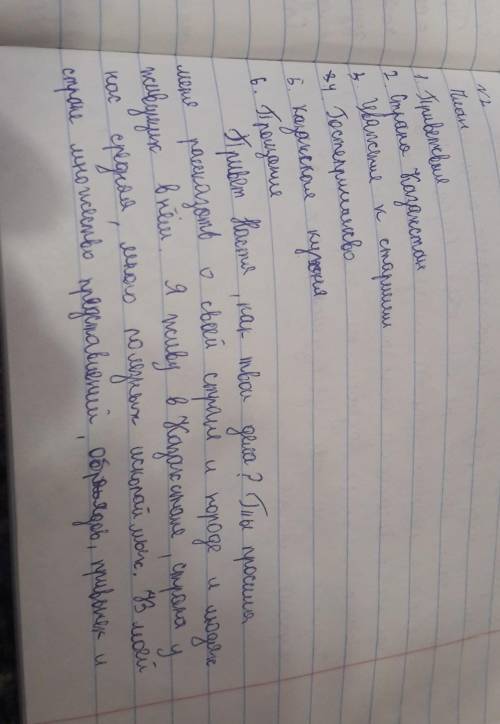 №2
План
1. Приветствие
2. Страна Казахстан
3. Уважение к старшим
4. Гостеприимство
5. Казахская кухня
6. Прощание
Привет Настя, как твои дела? Ты просила
меня рассказать о своей стране и народе и людях
живущих в нём. Я живу в Казахстане, страна у
нас средняя, много полезных ископаймых. Из моей
стране множество представлений, обрядов, привычек и